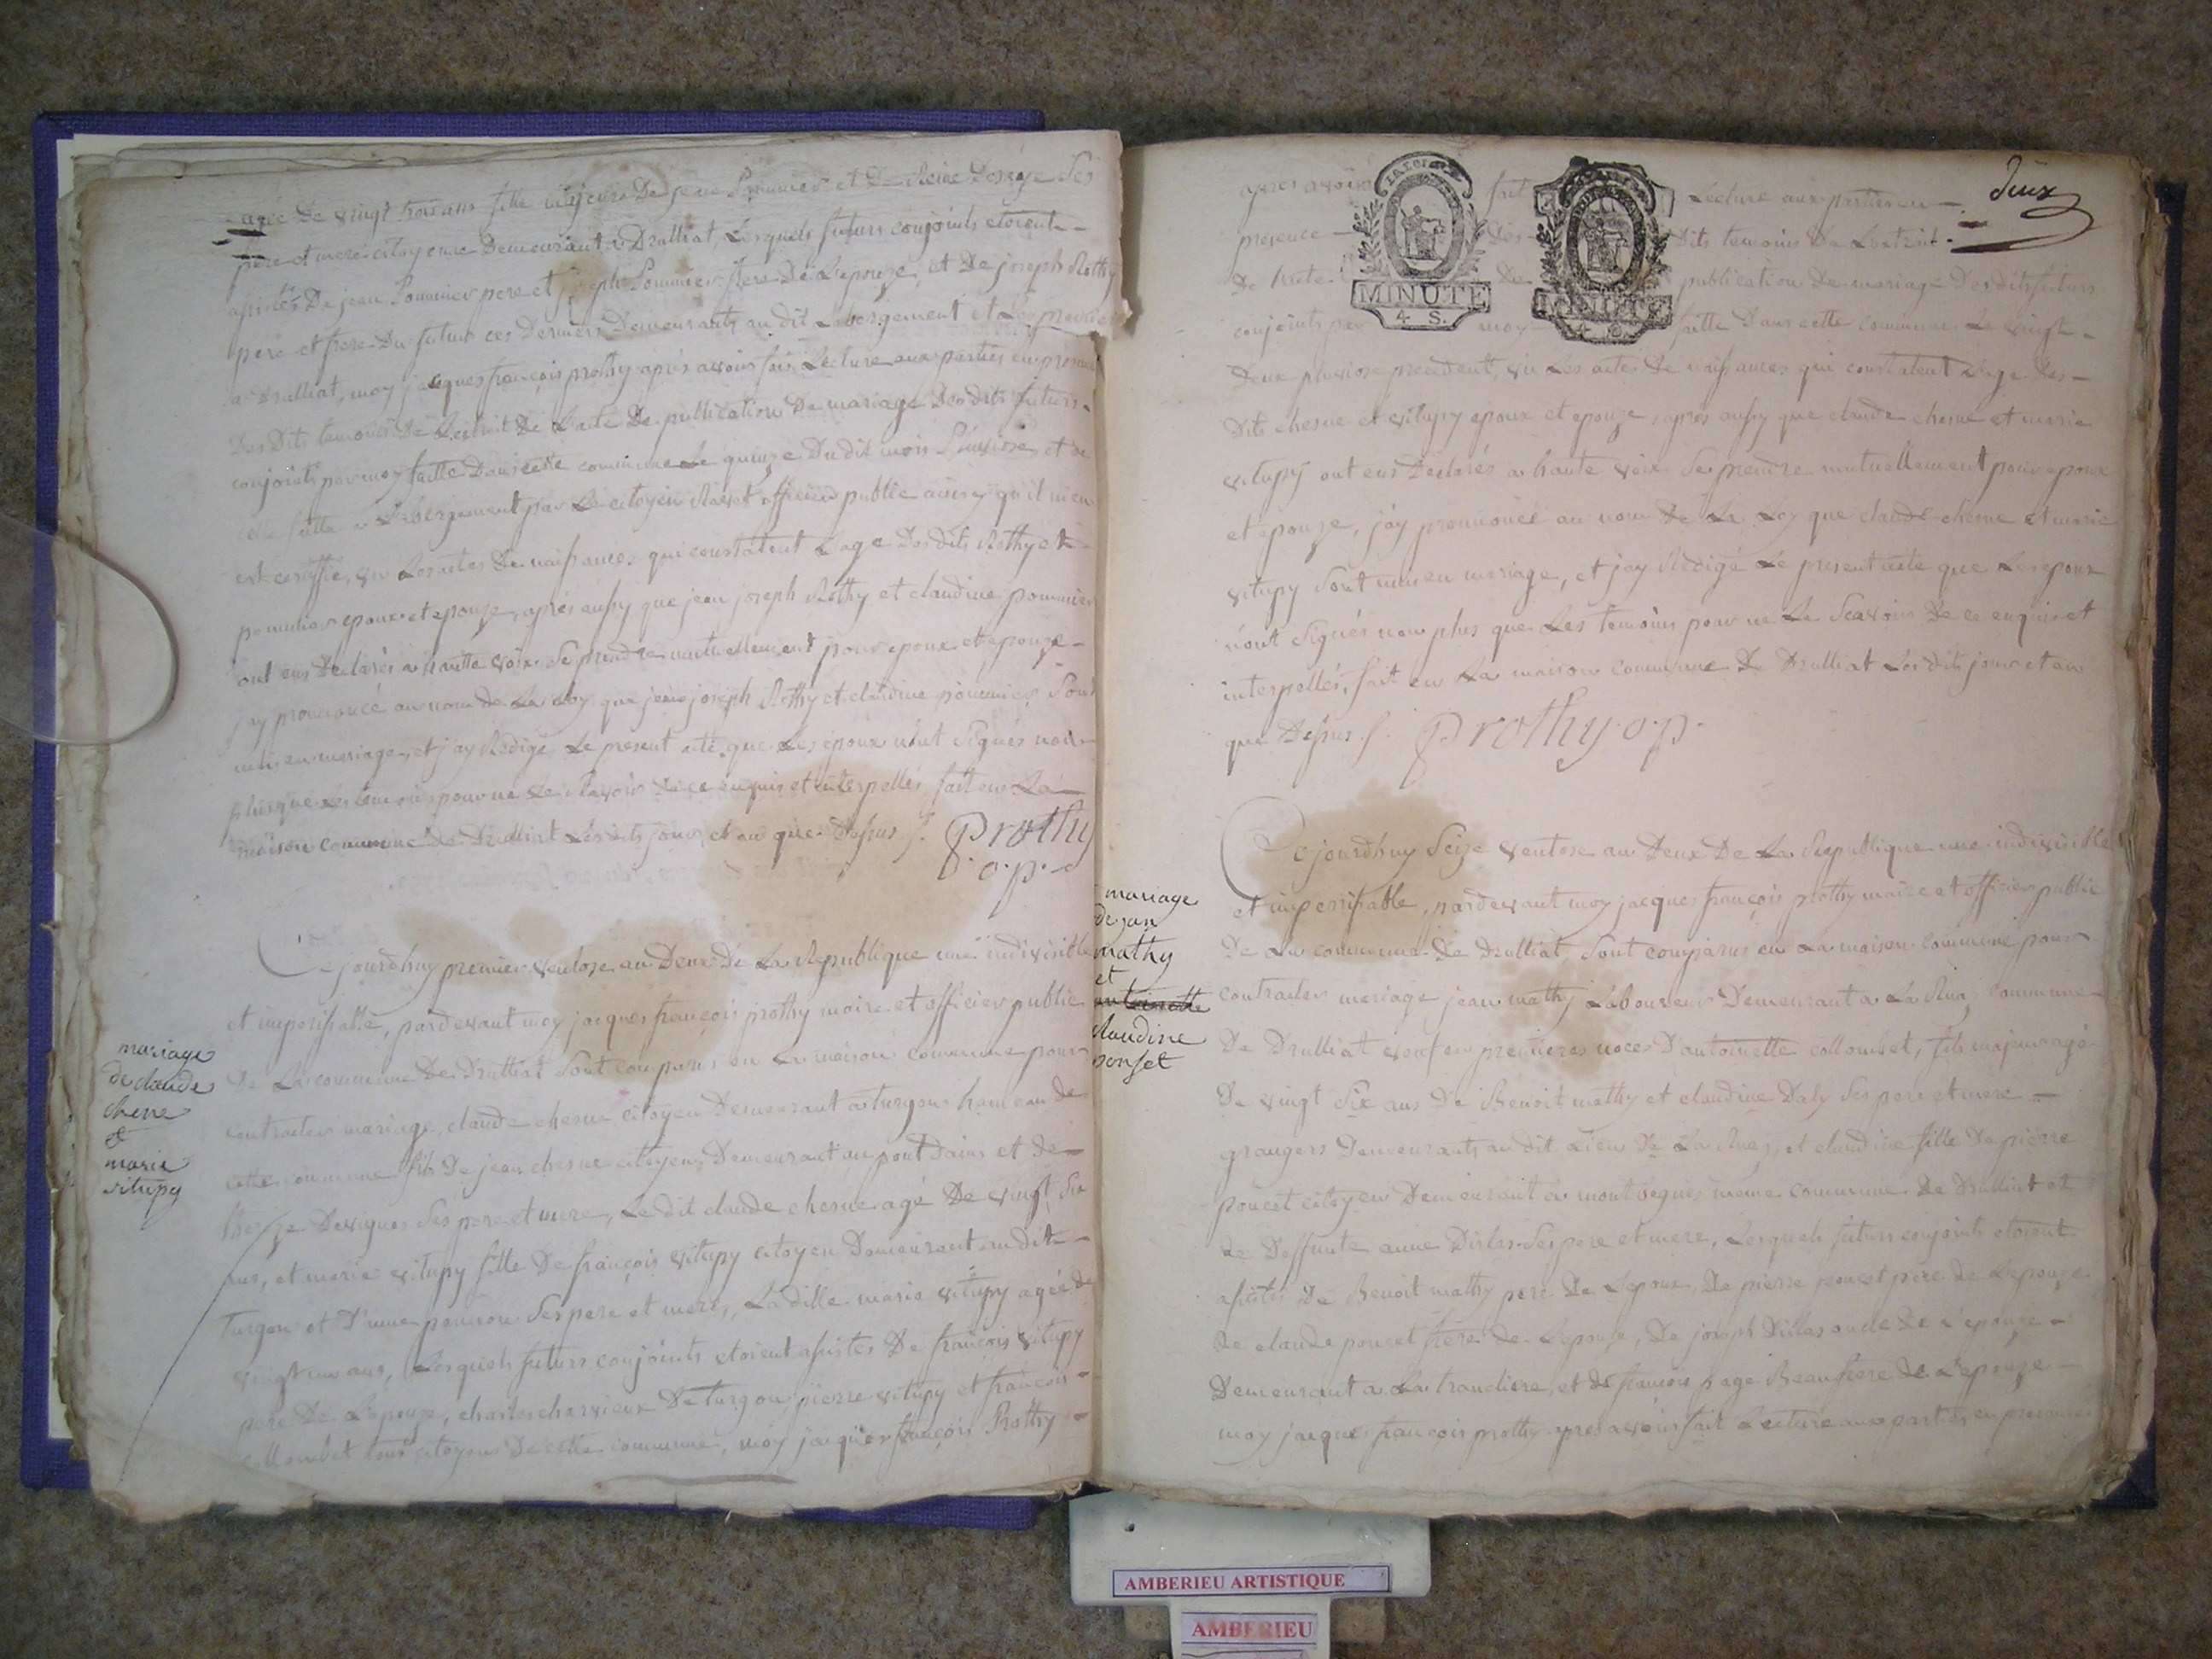 agée De vingt trois ans fille majeure De jean Pommier et De Reine Ses
pere et mere citoyenne Demeurant a Drulliat, Lesquels futurs conjoints etoient
De jean Pommier pere et joseph Pommier frere De L'epouze, et De joseph Rothy
pere et frere Du futur ces Derniers Demeurants au dit Lubergement et Les
a Drulliat, moy jacques françois prothy aprés avoir fait Lecture aux parties en presence
Des Dits temoins De Lextrait De L'acte De publication De mariage Des dits futurs
conjoints par moy faitte Dans cette commune Le quinze Du dit mois Pluviose, et de
celle faitte a Lubergement par Le citoyen officier public ainsy qu'il m'en
est certiffié, vu Les actes De naissances qui constatent L'age Des dits Rothy et
pommier epoux et epouze, aprés aussy que jean joseph Rothy et claudine pommier
ont eus Declarés a hautte voix Se prendre mutuellement pour epoux et epouze
j'ay prononcé au nom de La Loy que jean joseph Rothy et claudine pommier Sont
unis en mariage, et j'ay Redigé Le present acte que Les epoux n'ont Signés non
plus que Les temoins pour ne Le Sçavoir De ce enquis et interpellés, fait en La
maison commune De Drulliat Les dits jour et an que Dessus /. Prothy
o.p.
mariage
de claude
chene
&
marie
vitupy
Cejourdhuy premier ventose an Deux De La Republique une indivisible
et imperissable, pardevant moy jacques françois prothy maire et officier public
De La commune De Drulliat Sont comparus en La maison commune pour
contracter mariage, claude chesne citoyen Demeurant a turgon hameau de
cette commune fils De jean chesne citoyen Demeurant au pont Dains et de
Devignes Ses pere et mere, Le dit claude chesne agé De vingt Six
ans, et marie vitupy fille De françois vitupy citoyen Demeurant au dit
Turgon et D'anne Ses pere et mere, La dille marie vitupy agée de
vingt un ans, Lesquels futurs conjoints etoient assistés De françois vitupy
pere De L'epouze, charles charvieux De turgon, pierre vitupy et françois
collombet tous citoyens De cette commune, moy jacques françois Prothy
deux
MINUTE
4. S.
MINUTE
4. S.
apres avoir fait Lecture aux parties en
presence Des Dits temoins De Lextrait
De Lacte De publication De mariage Des dits futurs
conjoints par moy faitte Dans cette commune Le vingt
Deux pluviose precedent, vu Les actes De naissances qui constatent L'age Des
Dits chesne et vitupy epoux et epouze, apres aussy que claude chesne et marie
vitupy ont eus Declarés a haute voix Se prendre mutuellement pour epoux
et epouze, j'ay prononcé au nom De La Loy que claude chesne et marie
vitupy Sont unis en mariage, et j'ay Redigé Le present acte que Les epoux
n'ont Signés non plus que Les temoins pour ne Le Scavoir De ce enquis et
interpellés, fait en La maison commune De Drulliat Les dits jour et an
que Dessus /. Prothy o.p.
mariage
de jan
mathy
et
antoinette
claudine
ponset
Cejourdhuy Seize ventose an Deux De La Republique une indivisible
et imperissable, pardevant moy jacques françois prothy maire et officier public
De La commune De Drulliat Sont comparus en La maison commune pour
contracter mariage jean mathy Laboureur Demeurant a La Rua, commune
De Drulliat veuf en premieres noces D'antoinette collomset, fils majeur agé
De vingt Six ans De Benoit mathy et claudine Daly Ses pere et mere
grangers Demeurants au dit Lieu De La Rua, et claudine fille De pierre
poncet citoyen Demeurant en montbegues meme commune De Drulliat et
de Deffunte anne Dislas Ses pere et mere, Lesquels futurs conjoints etoient
assistés De Benoit mathy pere De Lepoux, De pierre poncet pere de Lepouze
De claude poncet frere de Lepouze, De joseph Dislas oncle De L'epouze
Demeurant a La trancliere, et de françois page Beaufrere De L'epouze
moy jacques françois prothy apres avoir fait Lecture aux parties en presence
AMBERIEU ARTISTIQUE
AMBERIEU